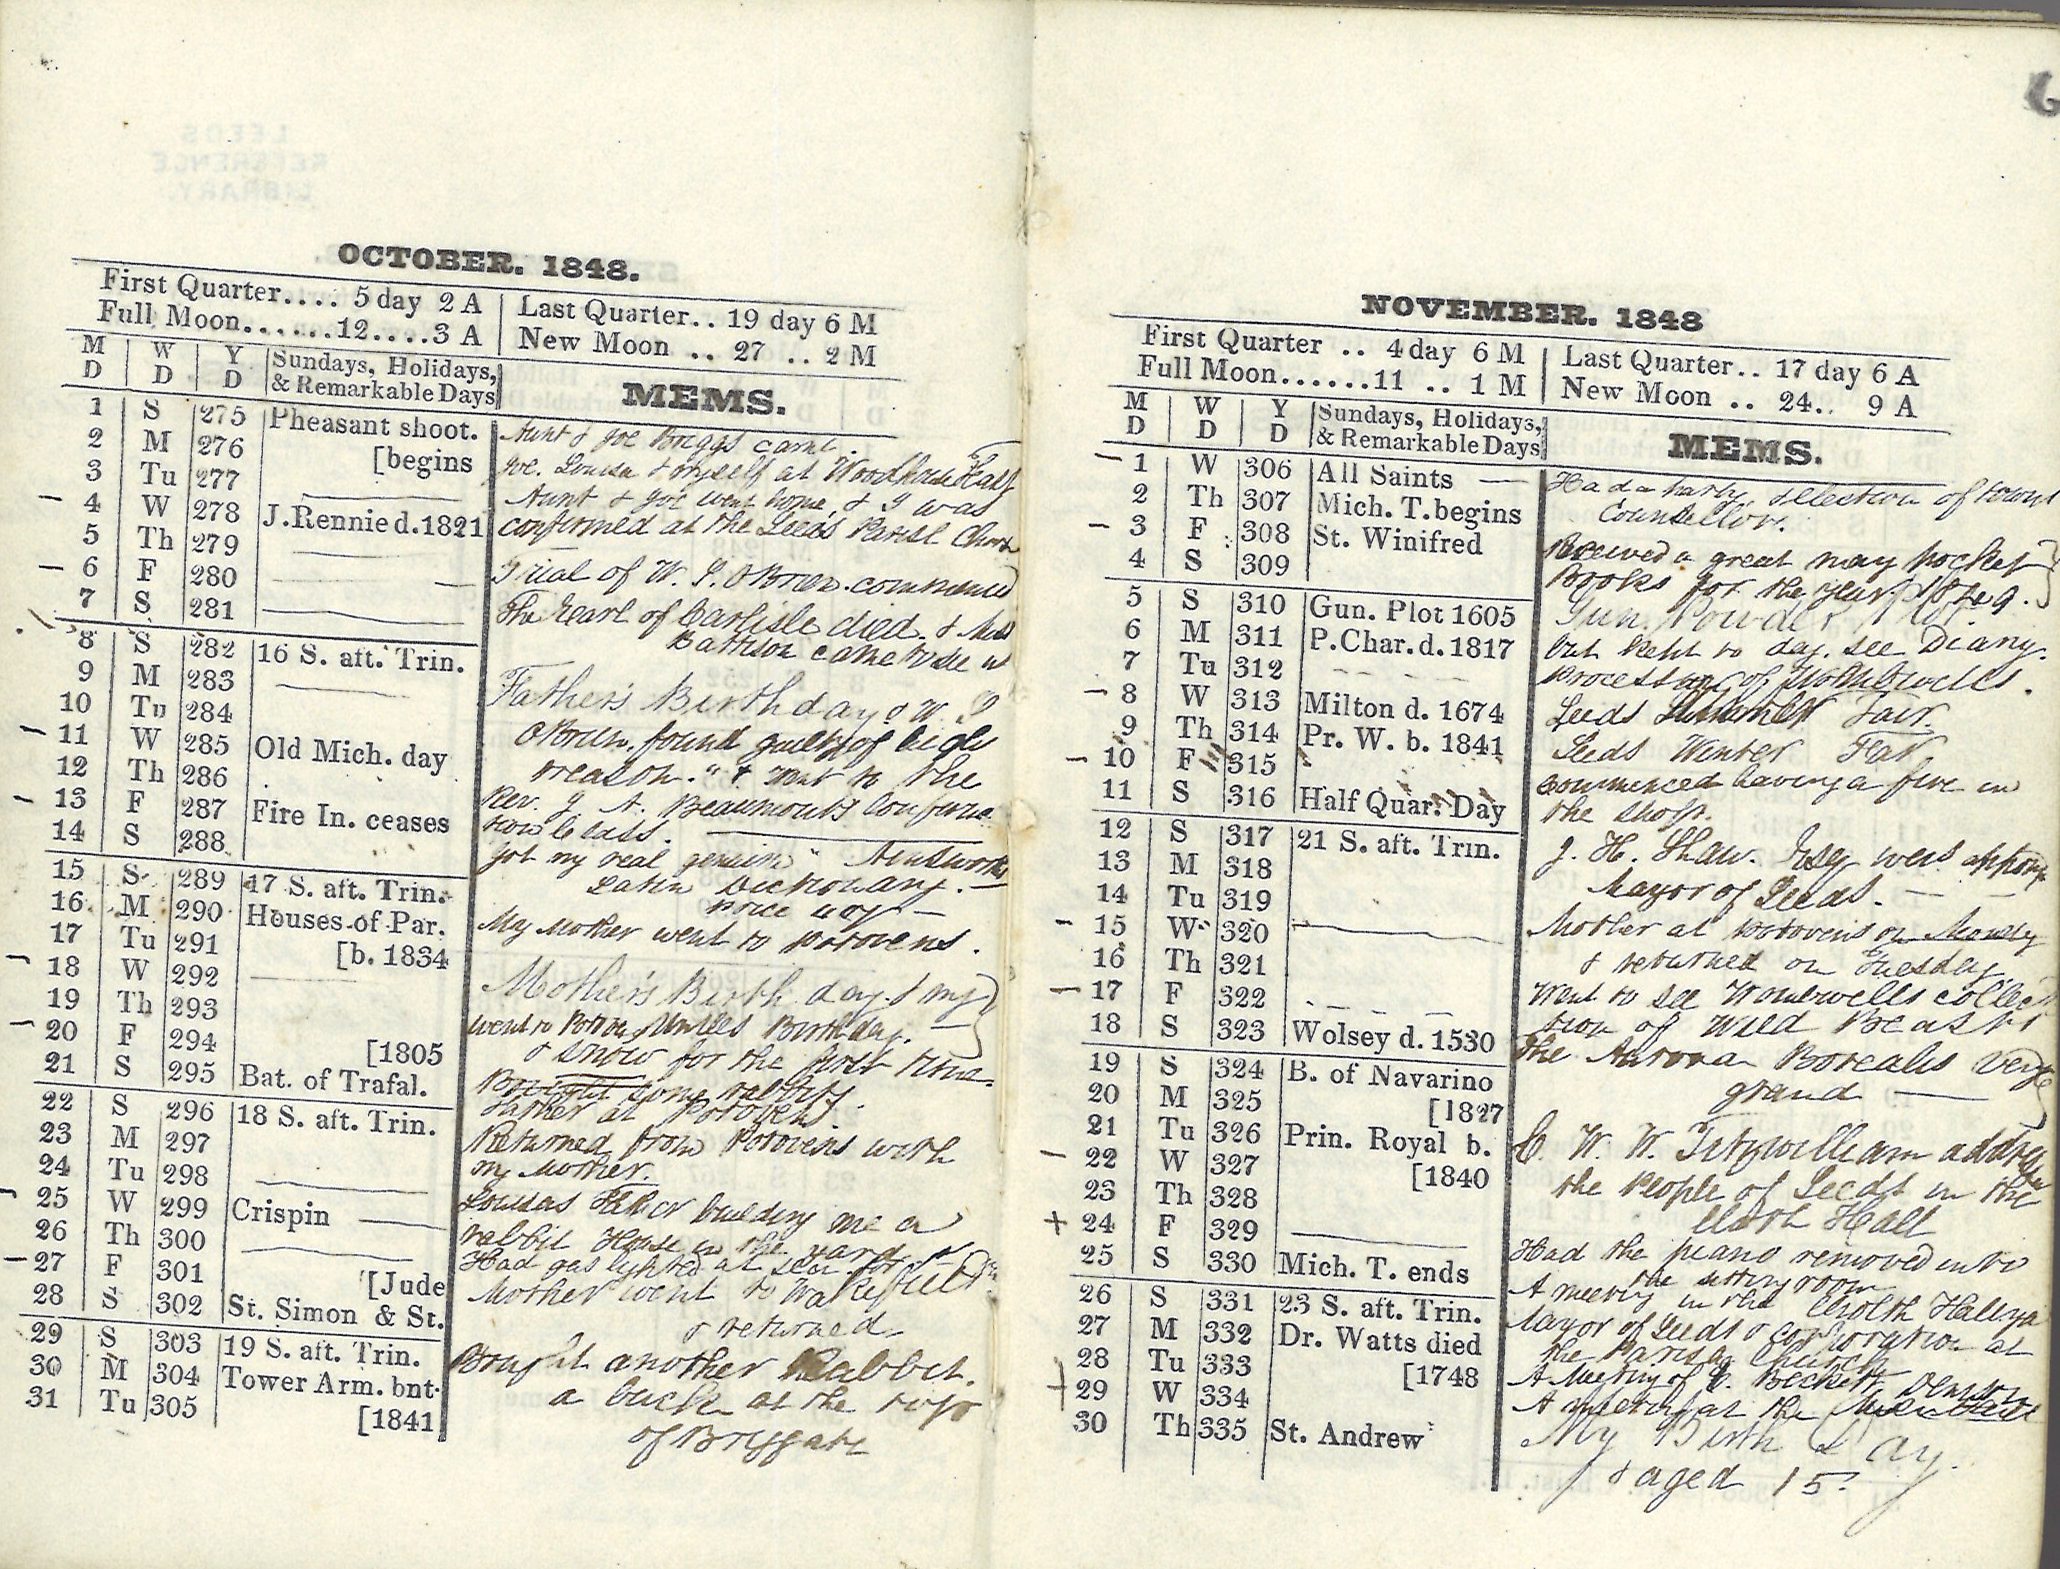 LEEDS
REFERENCE
LIBRARY.
6
OCTOBER. 1848.
First Quarter.... 5 day 2 A | Last Quarter.. 19 day 6 M
Full Moon......12....3 A | New Moon .. 27 .. 2 M
M D | W D | Y D | Sundays, Holidays, & Remarkable Days | MEMS.
1 S 275 Pheasant shoot.
2 M 276 [begins
3 Tu 277
4 W 278 J. Rennie d. 1821
5 Th 279
6 F 280
7 S 281
8 S 282 16 S. aft. Trin.
9 M 283
10 Tu 284
11 W 285 Old Mich. day
12 Th 286
13 F 287 Fire In. ceases
14 S 288
15 S 289 17 S. aft. Trin.
16 M 290 Houses of Par.
17 Tu 291 [b. 1834
18 W 292
19 Th 293
20 F 294 [1805
21 S 295 Bat. of Trafal.
22 S 296 18 S. aft. Trin.
23 M 297
24 Tu 298
25 W 299 Crispin
26 Th 300
27 F 301 [Jude
28 S 302 St. Simon & St.
29 S 303 19 S. aft. Trin.
30 M 304 Tower Arm. bnt.
31 Tu 305 [1841
Aunt & Joe Briggs came.
Joe. Louisa & myself at Woodhouse
Aunt & Joe went home, & I was
confirmed at the Leeds Parish Church
Trial of W. S. OBrien commenced
The Earl of Carlisle died & Miss
Battison came to see us
Father's Birthday & W. S
OBrien found guilty of high
treason." & went to the
Rev. J A. Beaumonts Confirma
tion Class.
Got my real genuine " Ainsworths
Latin Dictionary.
price
My Mother went to Potovens.
Mother's Birth day. & my
went to Uncles Birthday.
& snow for the first time.
Bought some rabbits.
Father at Potovens.
Returned from Potovens with
my Mother.
Louisas Father building me a
rabbit House in the yard
Had gas lighted at
Mother went to Wakefield
& returned
Bought another Rabbit.
a buck at the top
of Briggate
NOVEMBER. 1848
First Quarter .. 4 day 6 M | Last Quarter.. 17 day 6 A
Full Moon......11 .. 1 M | New Moon .. 24.. 9 A
M D | W D | Y D | Sundays, Holidays, & Remarkable Days | MEMS.
1 W 306 All Saints
2 Th 307 Mich. T. begins
3 F 308 St. Winifred
4 S 309
5 S 310 Gun. Plot 1605
6 M 311 P. Char. d. 1817
7 Tu 312
8 W 313 Milton d. 1674
9 Th 314 Pr. W. b. 1841
10 F 315
11 S 316 Half Quar. Day
12 S 317 21 S. aft. Trin.
13 M 318
14 Tu 319
15 W 320
16 Th 321
17 F 322
18 S 323 Wolsey d. 1530
19 S 324 B. of Navarino
20 M 325 [1827
21 Tu 326 Prin. Royal b.
22 W 327 [1840
23 Th 328
24 F 329
25 S 330 Mich. T. ends
26 S 331 23 S. aft. Trin.
27 M 332 Dr. Watts died
28 Tu 333 [1748
29 W 334
30 Th 335 St. Andrew
Had a selection of town
Counsellor.
Received a great many pocket
Books for the year 1849.
Gun Powder Plot.
but kept to day. see Diary.
Procession of Wombwells.
Leeds Fair.
Leeds Winter Fair
commenced having a fire in
the shop.
J. H. Shaw. Esq were
Mayor of Leeds.
Mother at Potovens on Monday
& returned on Tuesday
Went to see Wombwells collec
tion of Wild Beasts
The Aurora Borealis very
grand
C. W. W. Fitzwilliam
the People of Leeds in the
Cloth Hall
Had the piano removed into
the sitting room
A meeting in the Cloth Hall
Mayor of Leeds & corporation at
the Parish Church
A Meeting of E. Beckett Denison
A meeting at the
My Birth Day.
& aged 15.